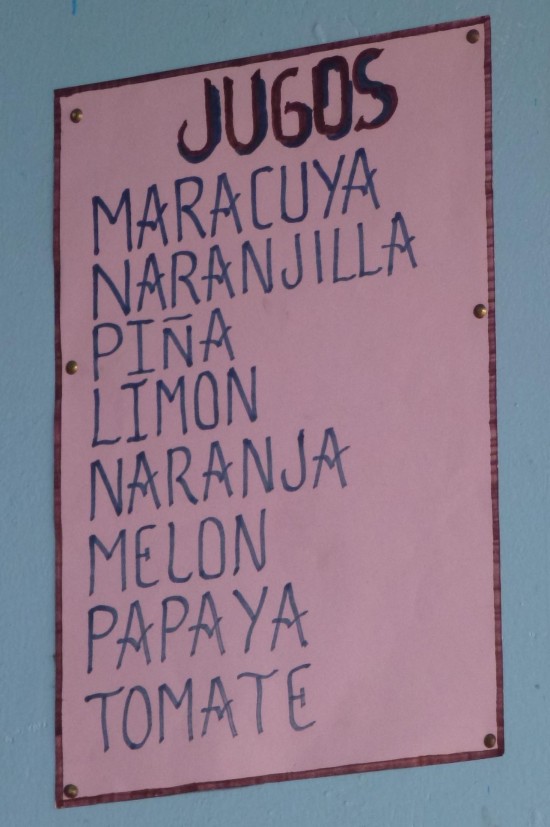 JUGOS
MARACUYA
NARANJILLA
PIÑA
LIMON
NARANJA
MELON
PAPAYA
TOMATE